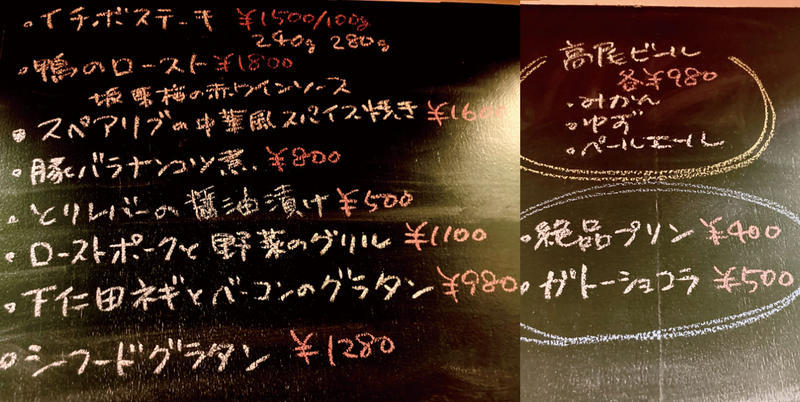 ・イチボステーキ ¥1500/100g
240g 280g
・鴨のロースト ¥1800
の赤ワインソース
・スペアリブの中華風スパイス焼き ¥1600
・豚バラナンコツ煮 ¥800
・とりレバーの醤油漬け ¥500
・ローストポークと野菜のグリル ¥1100
・下仁田ネギとベーコンのグラタン ¥980
・シーフードグラタン ¥1280
高尾ビール
各¥980
・みかん
・ゆず
・ペールエール
・絶品プリン ¥400
・ガトーショコラ ¥500